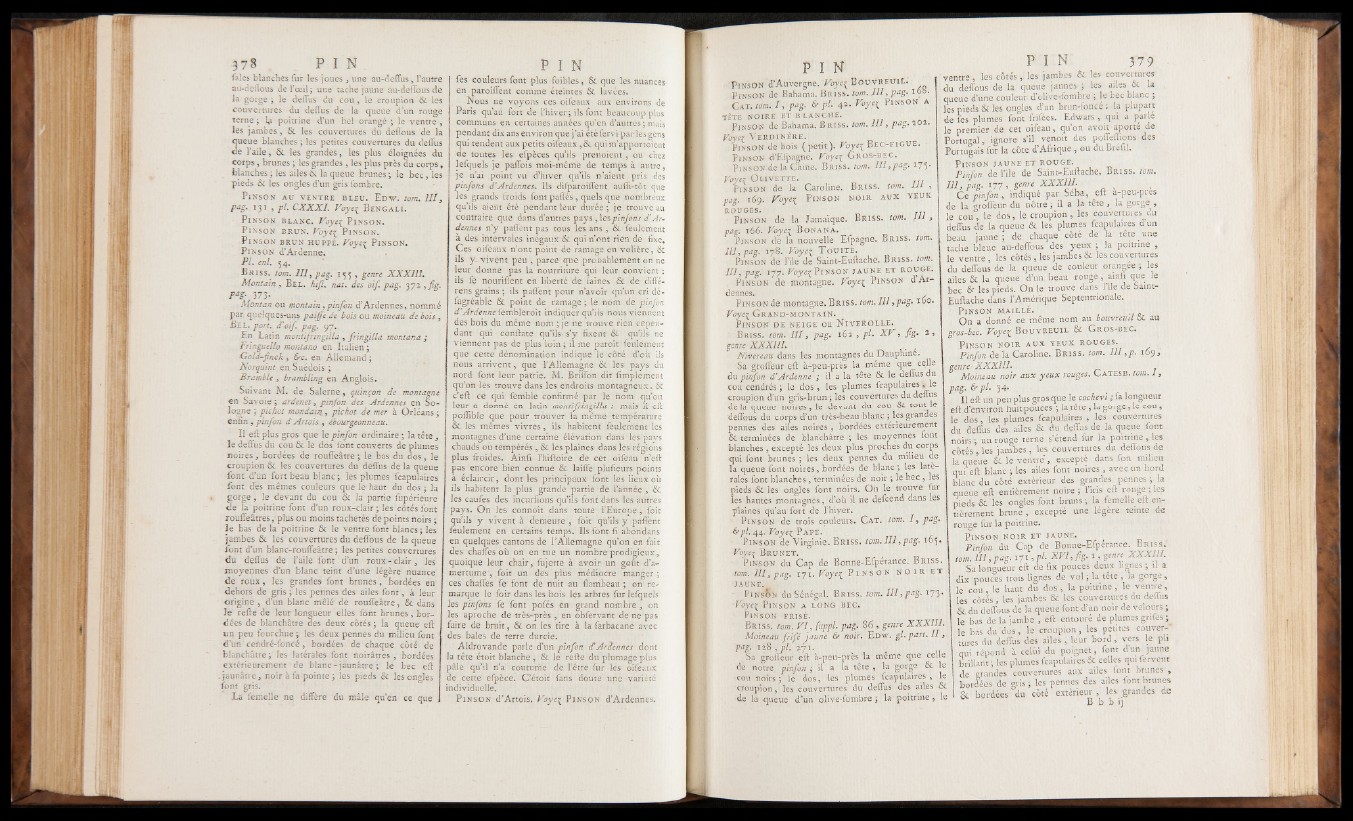 378 PIN
sales blanches sur les joues, une au-dessus, l'autre
au-dessous de l'œil; une tache jaune au-dessous de
la gorge; le dessus du cou, le croupion & les
couvertures du dessus de la queue d'un rouge
terne; la poitrine d'un bel orangé; le ventre,
les jambes, & les couvertures du dessous de la
queue blanches; les petites couvertures du dessus
de l'aîle, & les grandes, les plus éloignées du
corps, brunes; les grandes, les plus près du corps,
blanches; les aîles & la queue brunes; le bec, les
pieds & les ongles d'un gris sombre.
PINSON AU VENTRE BLEU. EDW. tom. III,
pag. 131, pl. CXXXI. Voyez BENGALI.
PINSON BLANC. Voyez PINSON.
PINSON BRUN. Voyez PINSON.
PINSON BRUN HUPPÉ. Voyez PINSON.
PINSON d'Ardenne.
Pl. enl. 54.
BRISS. tom. III, pag. 155, genre XXXIII.
Montain, BEL. hist. nat. des ois. pag. 372, fig.
pag. 373.
Montan ou montain, pinson d'Ardennes, nommé
par quelques-uns paisse de bois ou moineau de bois,
BEL. port. d'ois. pag. 97.
En Latin montifringilla, fringilla montana;
Fringuello montano en Italien;
Gold-finck, &c. en Allemand;
Norquint en Suédois;
Bramble, brambling en Anglois.
Suivant M. de Salerne, quinçon de montagne
en Savoie; ardenet, pinson des Ardennes en Sologne;
pichot mondain, pichot de mer à Orléans;
enfin, pinson d'Artois, ébourgeonneau.
Il est plus gros que le pinson ordinaire; la tête,
le dessus du cou & le dos sont couverts de plumes
noires, bordées de rousseâtre; le bas du dos, le
croupion & les couvertures du dessus de la queue
sont d'un fort beau blanc; les plumes scapulaires
sont des mêmes couleurs que le haut du dos; la
gorge, le devant du cou & la partie supérieure
de la poitrine sont d'un roux-clair; les côtés sont
rousseâtres, plus ou moins tachetés de points noirs;
le bas de la poitrine & le ventre sont blancs; les
jambes & les couvertures du dessous de la queue
sont d'un blanc-rousseâtre; les petites couvertures
du dessus de l'aîle sont d'un roux-clair, les
moyennes d'un blanc teint d'une légère nuance
de roux, les grandes sont brunes, bordées en
dehors de gris; les pennes des aîles sont, à leur
origine, d'un blanc mêlé de rousseâtre, & dans
le reste de leur longueur elles sont brunes, bordées
de blanchâtre des deux côtés; la queue est
un peu fourchue; les deux pennes du milieu sont
d'un cendré-foncé, bordées de chaque côté de
blanchâtre; les latérales sont noirâtres, bordées
extérieurement de blanc-jaunâtre; le bec est
jaunâtre, noir à sa pointe; les pieds & les ongles
sont gris.
La femelle ne diffère du mâle qu'en ce que
PIN
ses couleurs sont plus foibles, & que les nuances
en paroissent comme éteintes & lavées.
Nous ne voyons ces oiseaux aux environs de
Paris qu'au fort de l'hiver; ils sont beaucoup plus
communs en certaines années qu'en d'autres; mais
pendant dix ans environ que j'ai été servi par les gens
qui tendent aux petits oiseaux, & qui m'apportoient
de toutes les espèces qu'ils prenoient, ou chez
lesquels je passois moi-même de temps à autre,
je n'ai point vu d'hiver qu'ils n'aient pris des
pinsons d'Ardennes. Ils disparoissent aussi-tôt que
les grands froids sont passés, quels que nombreux
qu'ils aient été pendant leur durée; je trouve au
contraire que dans d'autres pays, les pinsons d'Ardennes
n'y passent pas tous les ans, & seulement
à des intervales inégaux & qui n'ont rien de fixe.
Ces oiseaux n'ont point de ramage en volière, &
ils y vivent peu, parce que probablement on ne
leur donne pas la nourriture qui leur convient:
ils se nourrissent en liberté de faînes & de différens
grains; ils passent pour n'avoir qu'un cri désagréable
& point de ramage; le nom de pinson
d'Ardenne sembleroit indiquer qu'ils nous viennent
des bois du même nom; je ne trouve rien cependant
qui constate qu'ils s'y fixent & qu'ils ne
viennent pas de plus loin; il me paroît seulement
que cette dénomination indique le côté d'où ils
nous arrivent, que l'Allemagne & les pays du
nord sont leur patrie. M. Brisson dit simplement
qu'on les trouve dans les endroits montagneux, &
c'est ce qui semble confirmé par le nom qu'on
leur a donné en latin montifringilla: mais il est
possible que pour trouver la même température
& les mêmes vivres, ils habitent seulement les
montagnes d'une certaine élévation dans les pays
chauds ou tempérés, & les plaines dans les régions
plus froides. Ainsi l'histoire de cet oiseau n'est
pas encore bien connue & laisse plusieurs points
à éclaircir, dont les principaux sont les lieux où
ils habitent la plus grande partie de l'année, &
les causes des incursions qu'ils font dans les autres
pays. On les connoît dans toute l'Europe, soit
qu'ils y vivent à demeure, soit qu'ils y passent
seulement en certains temps. Ils sont si abondans
en quelques cantons de l'Allemagne qu'on en fait
des chasses où on en tue un nombre prodigieux,
quoique leur chair, sujette à avoir un goût d'amertume,
soit un des plus médiocre manger;
ces chasses se font de nuit au flambeau; on remarque
le soir dans les bois les arbres sur lesquels
les pinsons se sont posés en grand nombre, on
les aproche de très-près, en observant de ne pas
faire de bruit, & on les tire à la sarbacane avec
des bales de terre durcie.
Aldrovande parle d'un pinson d'Ardennes dont
la tête étoit blanche, & le reste du plumage plus
pâle qu'il n'a coutume de l'être sur les oiseaux
de cette espèce. C'étoit sans doute une variété
individuelle.
PINSON d'Artois. Voyez PINSON d'Ardennes.
PIN
PINSON d'Auvergne. Voyez BOUVREUIL.
PINSON de Bahama. BRISS. tom. III, pag. 168.
CAT. tom. I, pag. & pl. 42. Voyez PINSON A
TÊTE NOIRE ET BLANCHE.
PINSON de Bahama. BRISS. tom. III, pag. 202.
Voyez VERDINÈRE.
PINSON de bois (petit). Voyez BEC-FIGUE.
PINSON d'Espagne. Voyez GROS-BEC.
PINSON de la Chine. BRISS. tom. III, pag. 175.
Voyez OLIVETTE.
PINSON de la Caroline. BRISS. tom. III,
pag. 169. Voyez PINSON NOIR AUX YEUX
ROUGES.
PINSON de la Jamaïque. BRISS. tom. III,
pag. 166. Voyez BONANA.
PINSON de la nouvelle Espagne. BRISS. tom.
III, pag. 178. Voyez TOUITE.
PINSON de l'île de Saint-Eustache. BRISS. tom.
III, pag. 177. Voyez PINSON JAUNE ET ROUGE.
PINSON de montagne. Voyez PINSON d'Ardennes.
PINSON de montagne. BRISS. tom. III, pag. 160.
Voyez GRAND-MONTAIN.
PINSON DE NEIGE ou NIVEROLLE.
BRISS. tom. III, pag. 162, pl. XV, fig. 2,
genre XXXIII.
Nivereau dans les montagnes du Dauphiné.
Sa grosseur est à-peu-près la même que celle
du pinson d'Ardenne; il a la tête & le dessus du
cou cendrés; le dos, les plumes scapulaires, le
croupion d'un gris-brun; les couvertures du dessus
de la queue noires, le devant du cou & tout le
dessous du corps d'un très-beau blanc; les grandes
pennes des aîles noires, bordées extérieurement
& terminées de blanchâtre; les moyennes sont
blanches, excepté les deux plus proches du corps
qui sont brunes; les deux pennes du milieu de
la queue sont noires, bordées de blanc; les latérales
sont blanches, terminées de noir; le bec, les
pieds & les ongles sont noirs. On le trouve sur
les hautes montagnes, d'où il ne descend dans les
plaines qu'au fort de l'hiver.
PINSON de trois couleurs. CAT. tom. I, pag.
& pl. 44. Voyez PAPE.
PINSON de Virginie. BRISS. tom. III, pag. 165.
Voyez BRUNET.
PINSON du Cap de Bonne-Espérance. BRISS.
tom. III, pag. 171. Voyez PINSON NOIR ET
JAUNE.
PINSON du Sénégal. BRISS. tom. III, pag. 173.
Voyez PINSON A LONG BEC.
PINSON FRISÉ.
BRISS. tom. VI, suppl. pag. 86, genre XXXIII.
Moineau frisé jaune & noir. EDW. gl. part. II,
pag. 128, pl. 271.
Sa grosseur est à-peu-près la même que celle
de notre pinson; il a la tête, la gorge & le
cou noirs; le dos, les plumes scapulaires, le
croupion, les couvertures du dessus des aîles &
de la queue d'un olive-sombre; la poitrine, le
PIN 379
ventre, les côtés, les jambes & les couvertures
du dessous de la queue jaunes; les aîles & la
queue d'une couleur d'olive-sombre; le bec blanc;
les pieds & les ongles d'un brun-foncé: la plupart
de ses plumes sont frisées. Edwars, qui a parlé
le premier de cet oiseau, qu'on avoit aporté de
Portugal, ignore s'il venoit des possessions des
Portugais sur la côte d'Afrique, ou du Brésil.
PINSON JAUNE ET ROUGE.
Pinson de l'île de Saint-Eustache. BRISS. tom.
III, pag. 177, genre XXXIII.
Ce pinson, indiqué par Séba, est à-peu-près
de la grosseur du nôtre; il a la tête, la gorge,
le cou, le dos, le croupion, les couvertures du
dessus de la queue & les plumes scapulaires d'un
beau jaune; de chaque côté de la tête une
tache bleue au-dessous des yeux; la poitrine,
le ventre, les côtés, les jambes & les couvertures
du dessous de la queue de couleur orangée; les
aîles & la queue d'un beau rouge, ainsi que le
bec & les pieds. On le trouve dans l'île de Saint-
Eustache dans l'Amérique Septentrionale.
PINSON MAILLÉ.
On a donné ce même nom au bouvreuil & au
gros-bec. Voyez BOUVREUIL & GROS-BEC.
PINSON NOIR AUX YEUX ROUGES.
Pinson de la Caroline. BRISS. tom. III, p. 169,
genre XXXIII.
Moineau noir aux yeux rouges. CATESB. tom. I,
pag. & pl. 34.
Il est un peu plus gros que le cochevi; sa longueur
est d'environ huit pouces; la tête, la gorge, le cou,
le dos, les plumes scapulaires, les couvertures
du dessus des aîles & du dessus de la queue sont
noirs; un rouge terne s'étend sur la poitrine, les
côtés, les jambes, les couvertures du dessous de
la queue & le ventre, excepté dans son milieu
qui est blanc; les aîles sont noires, avec un bord
blanc du côté extérieur des grandes pennes; la
queue est entièrement noire; l'iris est rouge; les
pieds & les ongles sont bruns; la femelle est entièrement
brune, excepté une légère teinte de
rouge sur la poitrine.
PINSON NOIR ET JAUNE.
Pinson du Cap de Bonne-Espérance. BRISS.
tom. III, pag. 171, pl. XVI, fig. 1, genre XXXIII.
Sa longueur est de six pouces deux lignes; il a
dix pouces trois lignes de vol; la tête, la gorge,
le cou, le haut du dos, la poitrine, le ventre,
les côtés, les jambes & les couvertures du dessus
& du dessous de la queue sont d'un noir de velours;
le bas de la jambe, est entouré de plumes grises;
le bas du dos, le croupion, les petites couvertures
du dessus des aîles, leur bord, vers le pli
qui répond à celui du poignet, sont d'un jaune
brillant; les plumes scapulaires & celles qui servent
de grandes couvertures aux aîles sont brunes,
bordées de gris; les pennes des aîles sont brunes
& bordées du côté extérieur, les grandes de
B b b ij